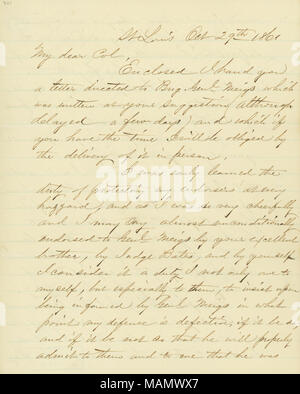 St Louis Oct 29th 1861
My dear Col,
Enclosed I hand you
a letter directed to Brig Genl Meigs which
was written at your suggestion although
delayed a few days, and which if
you have the time I will be obliged by
the delivery of it in person.
I was early learned the
duty of protecting my endorsers at every
hazzard, and as I was so very cheerfully
and I may say almost unconditionally
endorsed to Genl Meigs by your excellent
brother, by Judge Bates, and by yourself
I consider it a duty I not only owe to
myself, but especially to them, to insist upon
being informed by Genl Meigs in what
point my defense is defective, if it be so
and if it be not so that he will properly
admit to them and to me that he was
alamy
Image ID: MAMWX7
www.alamy.com